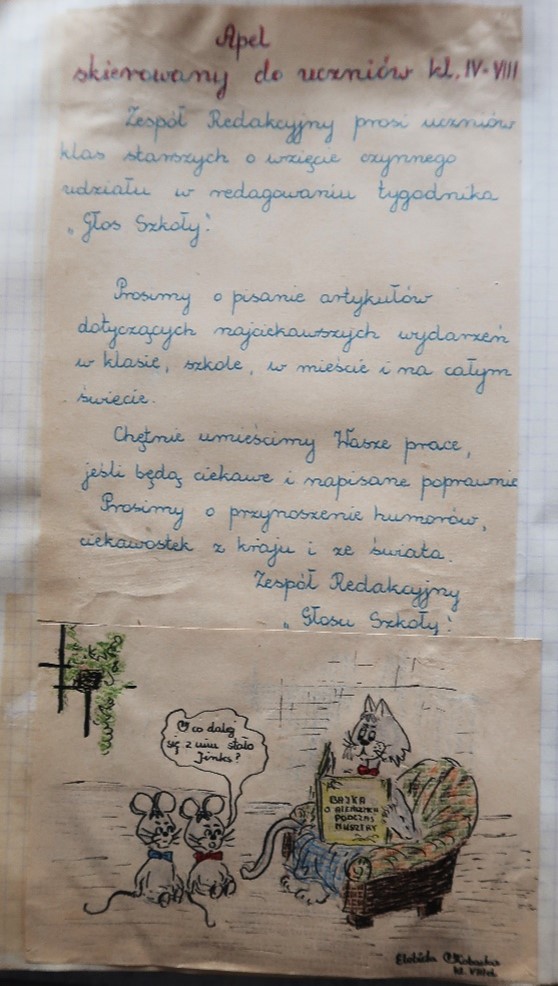 Apel
skierowany do uczniów kl. IV-VIII
Zespół Redakcyjny prosi uczniów
klas starszych o wzięcie czynnego
udziału w redagowaniu tygodnika
„Głos Szkoły".
Prosimy o pisanie artykułów
dotyczących najciekawszych wydarzeń
w klasie, szkole, w mieście i na całym
świecie.
Chętnie umieścimy Wasze prace,
jeśli będą ciekawe i napisane poprawnie
Prosimy o przynoszenie humorów,
ciekawostek z kraju i ze świata.
Zespół Redakcyjny
„Głosu Szkoły".
O co dalej
się z nim stało
Jinks?
BAJKA
O
PODCZAS
Elżbieta
kl. VIII d.